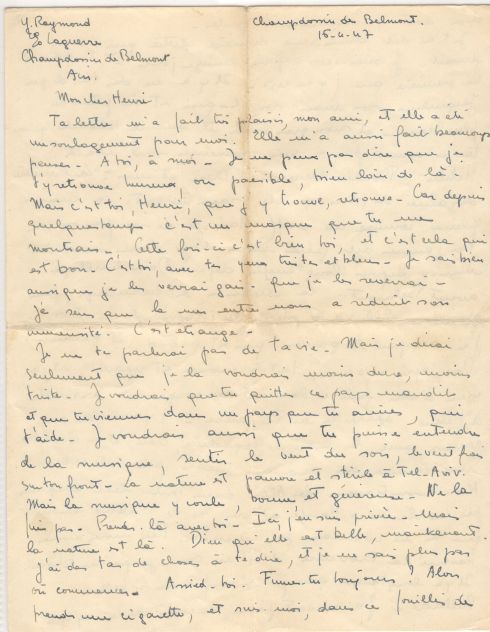 Y. Raymond
Laguerre
Champdossin de Belmont
Ain.
Champdossin de Belmont.
15-4-47
Mon cher Henri
Ta lettre m'a fait très plaisir, mon ami, et elle a été
un soulagement pour moi. Elle m'a aussi fait beaucoup
penser - A toi, à moi - Je ne peux pas dire que je
t'y retrouve heureux, ou paisible, bien loin de là -
Mais c'est toi, Henri, que j'y trouve, retrouve - Car depuis
quelques temps c'est un masque que tu me
montrais - Cette fois-ci c'est bien toi, et c'est cela qui
est bon - C'est toi, avec tes yeux tristes et bleus - Je sais bien
aussi que je les verrai gais - que je les reverrai -
Je sens que la mer entre nous a réduit son
immensité. C'est étrange -
Je ne te parlerai pas de ta vie - Mais je dirai
seulement que je la voudrais moins dure, moins
triste - Je voudrais que tu quittes ce pays maudit
et que tu viennes dans un pays que tu aimes, qui
t'aide - Je voudrais aussi que tu puisses entendre
de la musique, sentir le vent du soir, le vent frais
sur ton front - La nature est pauvre et stérile à Tel-Aviv.
Mais la musique y coule, bonne et généreuse - Ne la
fuis pas - Prends-là avec toi - Ici j'en suis privée - Mais
la nature est là. Dieu qu'elle est belle, maintenant.
J'ai des tas de choses à te dire, et je ne sais plus pas
où commencer - Assied-toi. Fumes-tu toujours ? Alors
prends une cigarette, et suis-moi, dans ce fouillis de